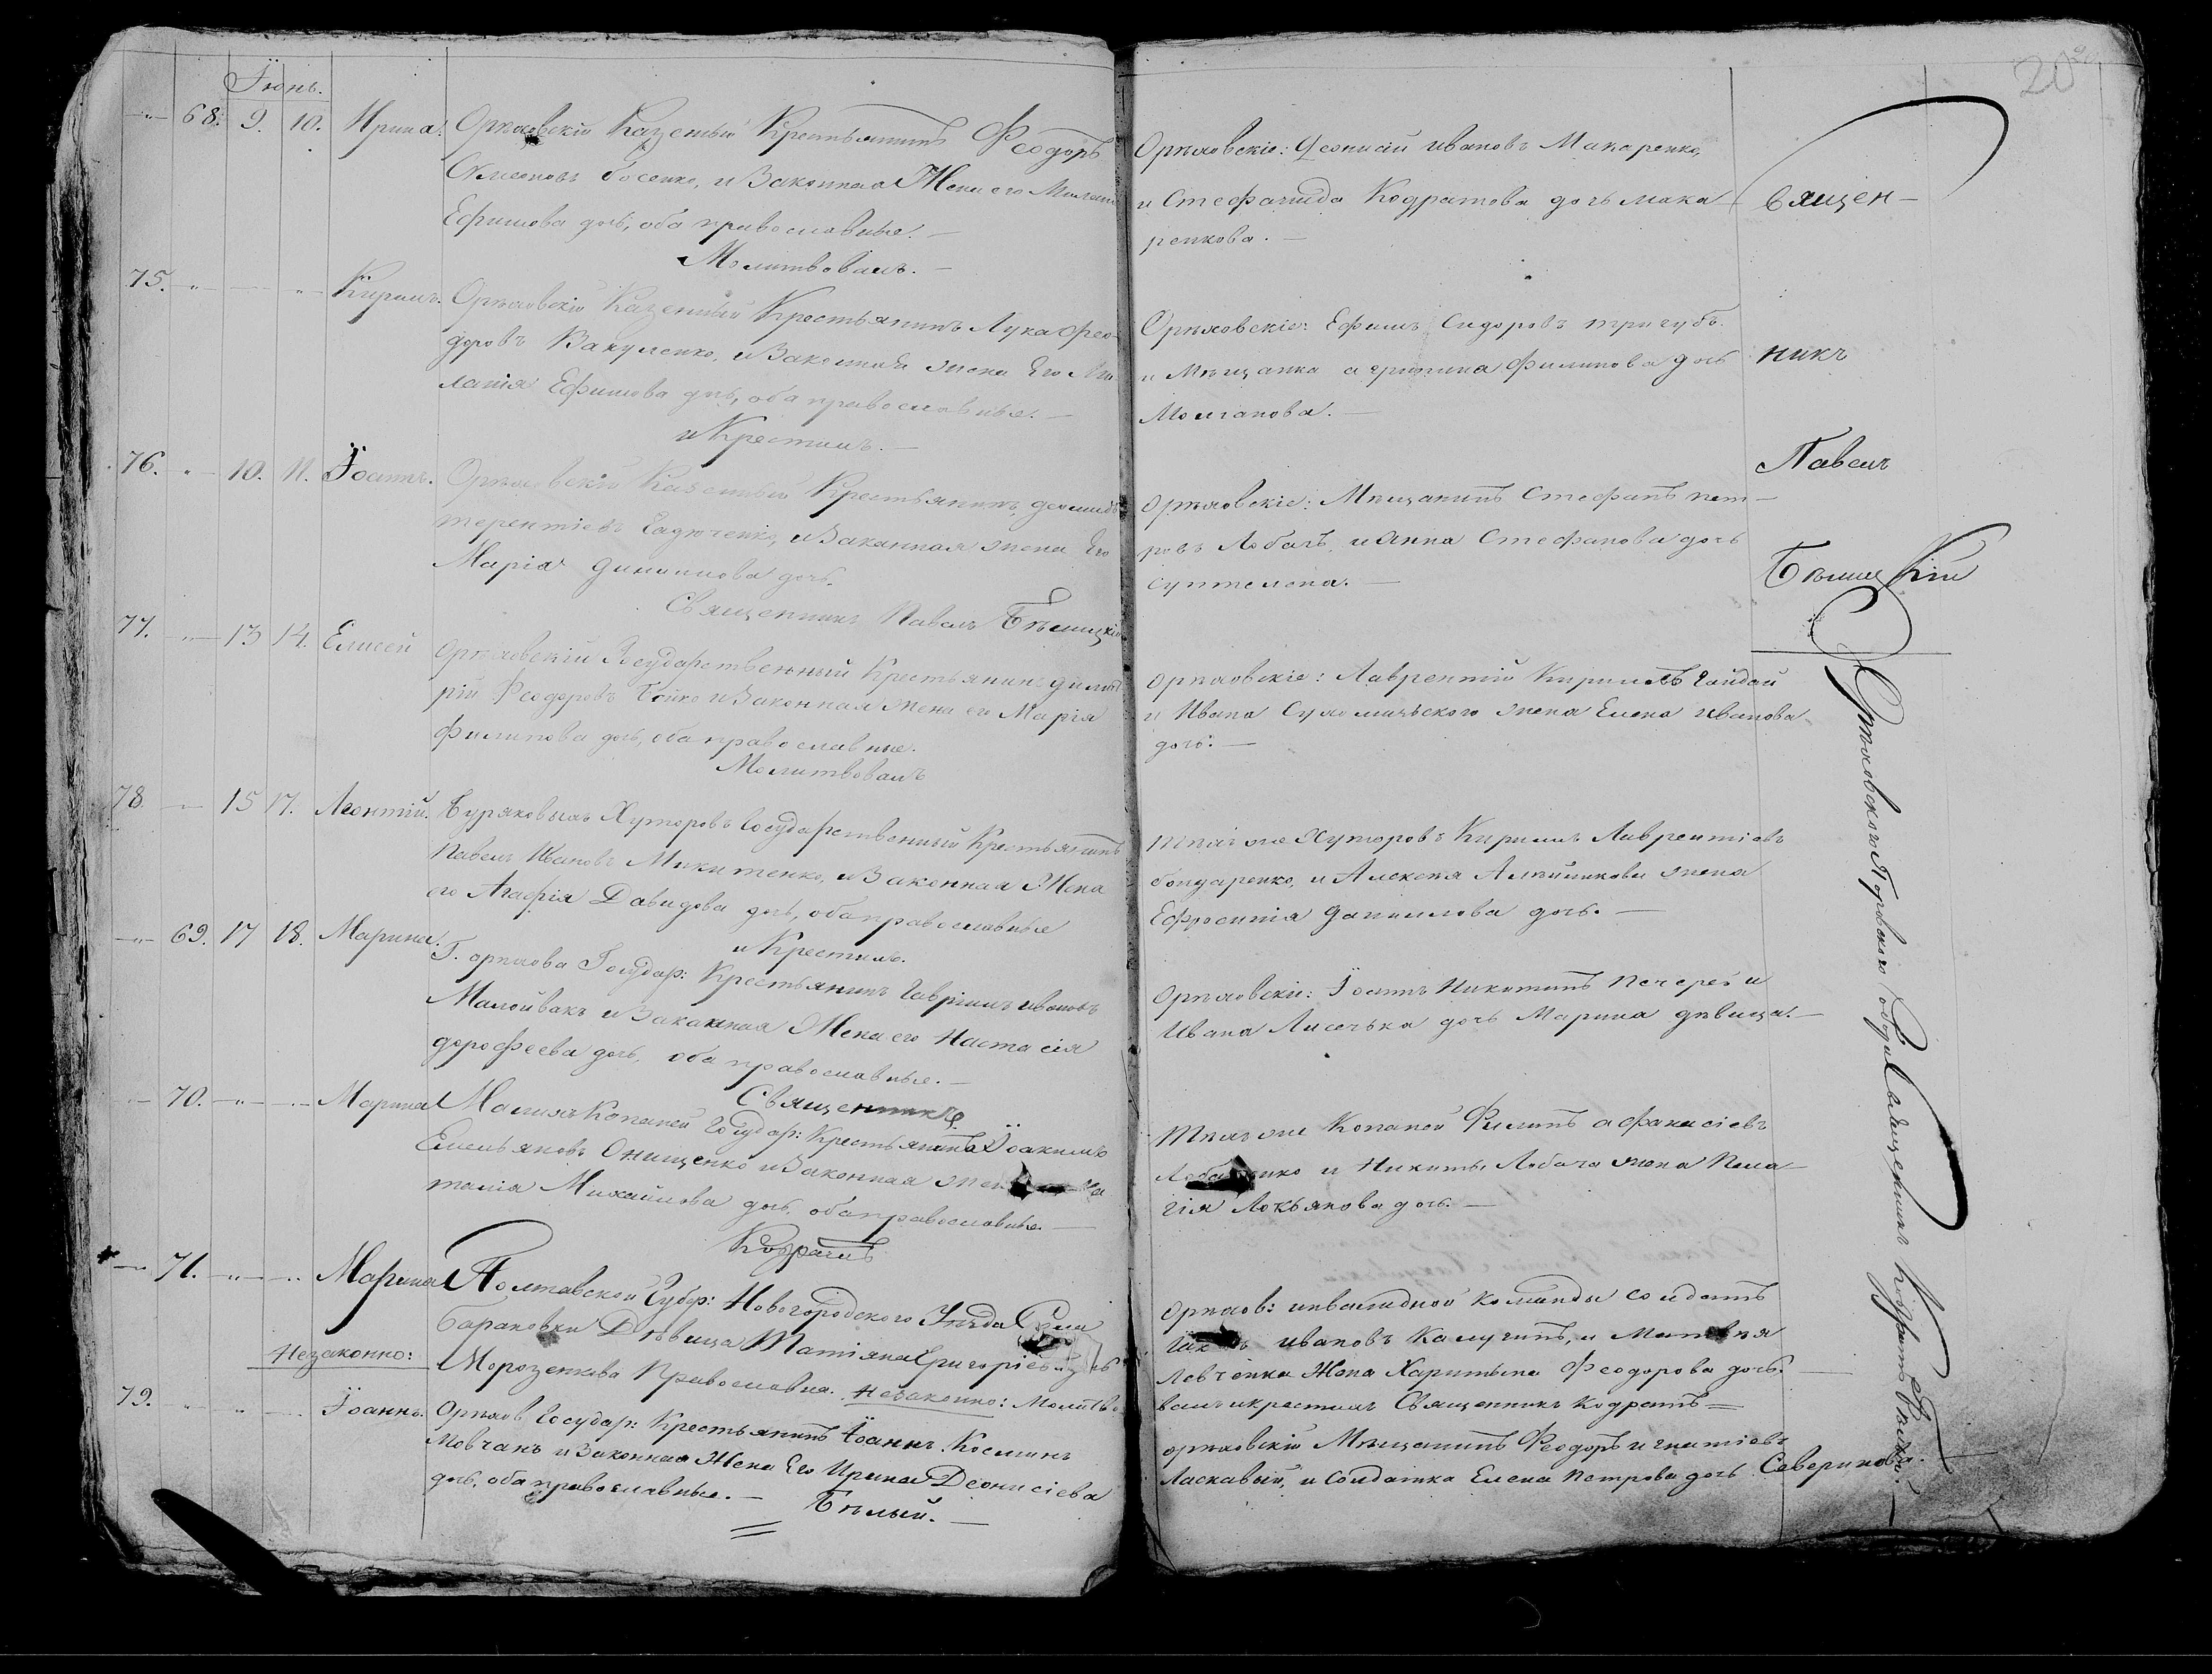 Іюнь.
68. 9. 10. Ирина. Орѣховскій Казенный Крестьянинъ Феодоръ
Ефимова дочь, оба православные. —
Молитвовалъ. —
75. Кирилъ. Орѣховскій Казенный Крестьянинъ Лука Фео-
доровъ Вакуленко, и Законная жена Его Ме
ланія Ефимова дочь, оба православные. —
и Крестилъ. —
76. 10. 11. Іоаннъ. Орѣховскій Казенный Крестьянинъ,
терентіевъ и Законная жена Его
Марія дочь.
Священникъ Павелъ Бѣлицкій
77. 13 14. Елисей Орѣховскій Государственный Крестьянинъ дмит
рій Феодоровъ Бойко и Законная жена его Марія
Филипова дочь, оба православные.
Молитвовалъ
78 15 17. Леонтій. Буряковыхъ Хуторовъ Государственный Крестьянинъ
Павелъ Ивановъ Микитенко, и Законная Жена
его Агафія Давидова дочь, оба православные
и Крестилъ.
69. 17 18. Марина. Г. орѣхова Государ: Крестьянинъ Гавріилъ ивановъ
и Законная Жена его Настасія
дорофеева дочь, оба православные. —
Священникъ
70. Марина Малихъ Копаней Государ: Крестьянинъ Іоакимъ
Емельяновъ Онищенко и Законная жена На
талія Михайлова дочь, оба православные. —
Кодратъ
71. Марина Полтавской Губер: Новогородского Уѣзда Села
Барановки Дѣвица Татіяна Григоріева дочь
Незаконно: Морозенкова Православна. Незаконно: Молитво
79. Іоаннъ. Орѣхов Государ: Крестьянинъ Іоаннъ Косминъ
Мовчанъ и Законная Жена Его Ирина Деонисіева
дочь, оба православные. — Бѣлый. —
20
Орѣховскіе: Деонисій ивановъ Макаренко,
и Стефанида Кодратова дочь мака
ренкова. —
Орѣховскіе: Ефимъ Сидоровъ тригубъ.
и Мѣщанка агрипина Филипова дочь
Молчанова. —
Орѣховскіе: Мѣщанинъ Стефанъ пет—
ровъ Лобачъ, и Анна Стефанова дочь
орѣховскіе: Лаврентій Кириловъ Гайдай
и Ивана жена Елена иванова
дочь. —
тѣхъ же Хуторовъ Кирилъ Лаврентіевъ
бондаренко, и Алексѣя жена
Ефросинія данилова дочь. —
Орѣховскіе: Іоаннъ Никитинъ Печерей и
Ивана Лисечька дочь Марина дѣвица. —
Тѣхъ же Копаней Филипъ афанасіевъ
и Никиты Лобача жена Пела—
гія Лукьянова дочь. —
Орѣхов: инвалидной команды солдатъ
ивановъ Калугинъ, и Матвѣя
Левченка Жена Харитына Феодорова дочь. —
валъ и крестилъ Священникъ Кодратъ =
орѣховскій Мѣщанинъ Феодоръ игнатіевъ
Ласкавый, и Солдатка Елена Петрова дочь Северинова.
Священ—
никъ
Павелъ
Бѣлицкій
Орѣховского Покровского Собора Священникъ Кодратъ Бѣлый. —